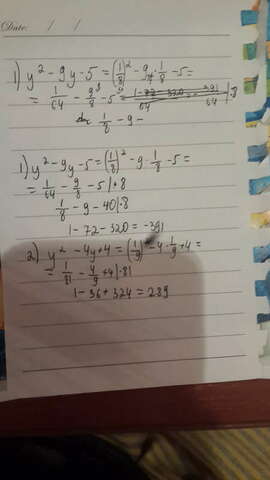 Date: / /
1) y² - 9y - 5 = (1/8)² - 9 · 1/8 - 5 =
= 1/64 - 9/8 - 5 = 1-72-320/64 = -391/64 | · 8
1/8 - 9 -
1) y² - 9y - 5 = (1/8)² - 9 · 1/8 - 5 =
= 1/64 - 9/8 - 5 | · 8
1/8 - 9 - 40 | · 8
1 - 72 - 320 = -391
2) y² - 4y + 4 = (1/9)² - 4 · 1/9 + 4 =
= 1/81 - 4/9 + 4 | · 81
1 - 36 + 324 = 289